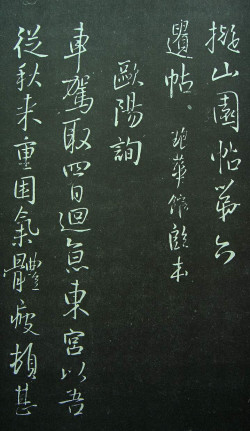 擬山園帖第六
帖 琅華館 本
歐陽詢
車駕取四日迴京東宮以吾
從秋来重困氣體疲頓甚